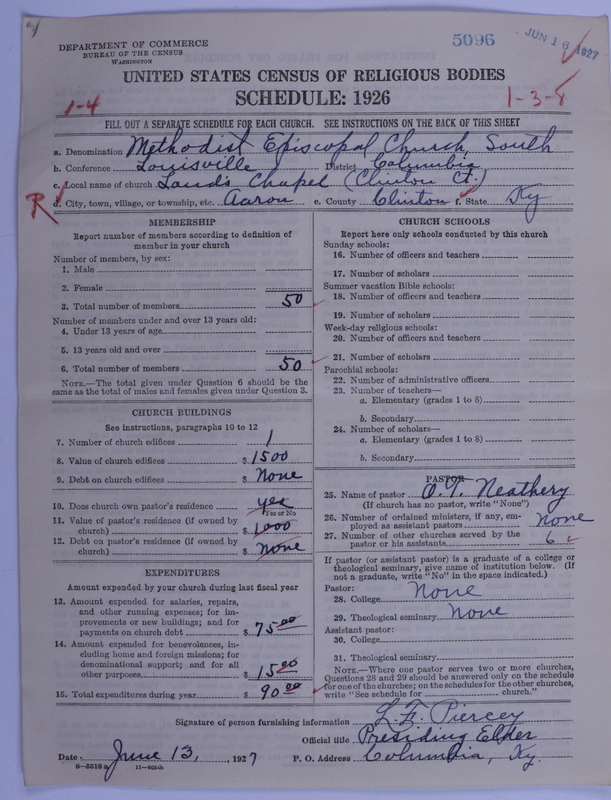 DEPARTMENT OF COMMERCE
BUREAU OF THE CENSUS
WASHINGTON
5096
JUN 16 1927
UNITED STATES CENSUS OF RELIGIOUS BODIES
SCHEDULE: 1926
1-4
1-3-8
FILL OUT A SEPARATE SCHEDULE FOR EACH CHURCH. SEE INSTRUCTIONS ON THE BACK OF THIS SHEET
a. Denomination Methodist Episcopal Church, South
b. Conference Louisville District Columbia
c. Local name of church Land's Chapel (Clinton Ct.)
R
d. City, town, village, or township, etc. Aaron e. County Clinton f. State Ky
MEMBERSHIP
Report number of members according to definition of
member in your church
Number of members, by sex:
1. Male
2. Female
3. Total number of members 50
Number of members under and over 13 years old:
4. Under 13 years of age
5. 13 years old and over
6. Total number of members 50
NOTE.—The total given under Question 6 should be the
same as the total of males and females given under Question 3.
CHURCH BUILDINGS
See instructions, paragraphs 10 to 12
7. Number of church edifices 1
8. Value of church edifices $ 1500
9. Debt on church edifices $ None
10. Does church own pastor's residence yes
Yes or No
11. Value of pastor's residence (if owned by
church) $ 1000
12. Debt on pastor's residence (if owned by
church) $ none
EXPENDITURES
Amount expended by your church during last fiscal year
13. Amount expended for salaries, repairs,
and other running expenses; for im-
provements or new buildings; and for
payments on church debt $ 75 00
14. Amount expended for benevolences, in-
cluding home and foreign missions; for
denominational support; and for all
other purposes $ 15 00
15. Total expenditures during year $ 90 00
CHURCH SCHOOLS
Report here only schools conducted by this church
Sunday schools:
16. Number of officers and teachers
17. Number of scholars
Summer vacation Bible schools:
18. Number of officers and teachers
19. Number of scholars
Week-day religious schools:
20. Number of officers and teachers
21. Number of scholars
Parochial schools:
22. Number of administrative officers
23. Number of teachers—
a. Elementary (grades 1 to 8)
b. Secondary
24. Number of scholars—
a. Elementary (grades 1 to 8)
b. Secondary
PASTOR
25. Name of pastor O. T. Neathery
(If church has no pastor, write "None")
26. Number of ordained ministers, if any, em-
ployed as assistant pastors None
27. Number of other churches served by the
pastor or his assistants 6
If pastor (or assistant pastor) is a graduate of a college or
theological seminary, give name of institution below. (If
not a graduate, write "No" in the space indicated.)
Pastor:
28. College None
29. Theological seminary None
Assistant pastor:
30. College
31. Theological seminary
NOTE.—Where one pastor serves two or more churches,
Questions 28 and 29 should be answered only on the schedule
for one of the churches; on the schedules for the other churches,
write "See schedule for church."
Signature of person furnishing information L. F. Piercey
Official title Presiding Elder
Date June 13, 1927 P. O. Address Columbia, Ky.
8-5518 a 11-9054b